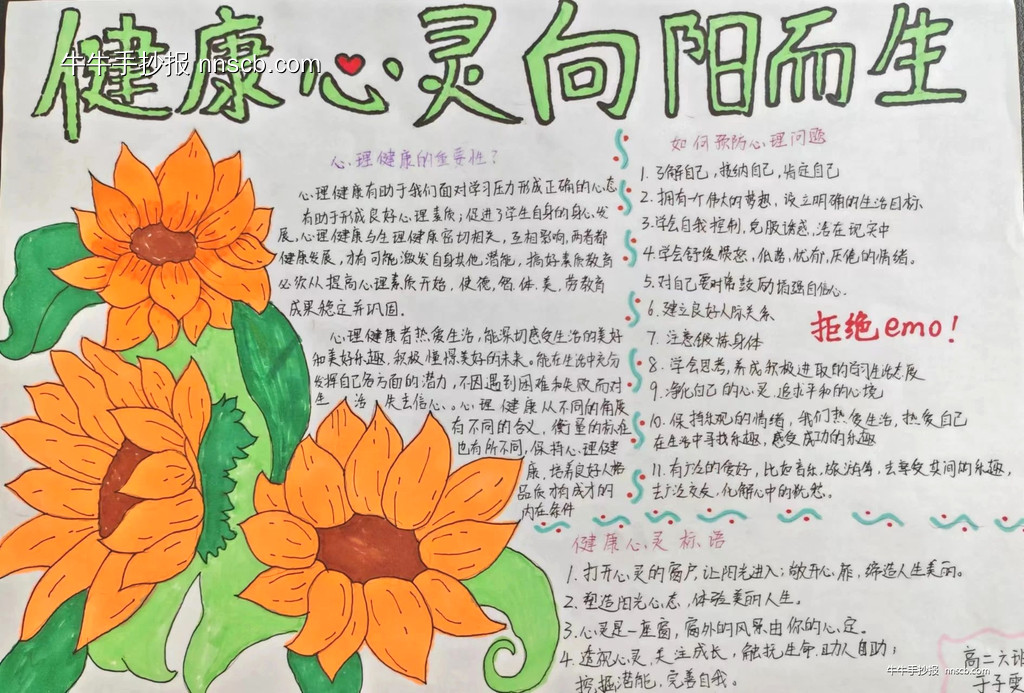 健康心灵向阳而生
牛牛手抄报 nnscb.com
心理健康的重要性？
心理健康有助于我们面对学习压力形成正确的心态
有助于形成良好心理素质；促进了学生自身的身心发
展，心理健康与生理健康密切相关，互相影响，两者都
健康发展，才有可能激发自身其他潜能，搞好素质教育
必须从提高心理素质开始，使德、智、体、美、劳教育
成果稳定并巩固。
心理健康者热爱生活，能深切感受生活的美好
和美好乐趣，积极憧憬美好的未来。能在生活中充分
发挥自己各方面的潜力，不因遇到困难和失败而对
生活失去信心。心理健康从不同的角度
有不同的含义，衡量的标准
也有所不同，保持心理健
康，培养良好人格
品质才有成才的
内在条件
如何预防心理问题
1. 了解自己，接纳自己，肯定自己
2. 拥有一个伟大的梦想，设立明确的生活目标
3. 学会自我控制，克服诱惑，活在现实中
4. 学会舒缓愤怒，低落，忧郁，厌倦的情绪。
5. 对自己要时常鼓励增强自信心.
6. 建立良好人际关系
拒绝emo！
7. 注意锻炼身体
8. 学会思考，养成积极进取的学习生活态度
9. 净化自己的心灵，追求平和的心境
10. 保持乐观的情绪，我们热爱生活，热爱自己
在生活中寻找乐趣，感受成功的乐趣
11. 有广泛的爱好，比如音乐，旅游等，去享受其间的乐趣，
去广泛交友，化解心中的忧愁。
健康心灵标语
1. 打开心灵的窗户，让阳光进入；敞开心扉，缔造人生美丽。
2. 塑造阳光心态，体验美丽人生。
3. 心灵是一座窗，窗外的风景由你的心定。
4. 透视心灵，关注成长，触抚生命，助人自助；
挖掘潜能，完善自我。
高二六班
牛牛手抄报 nnscb.com